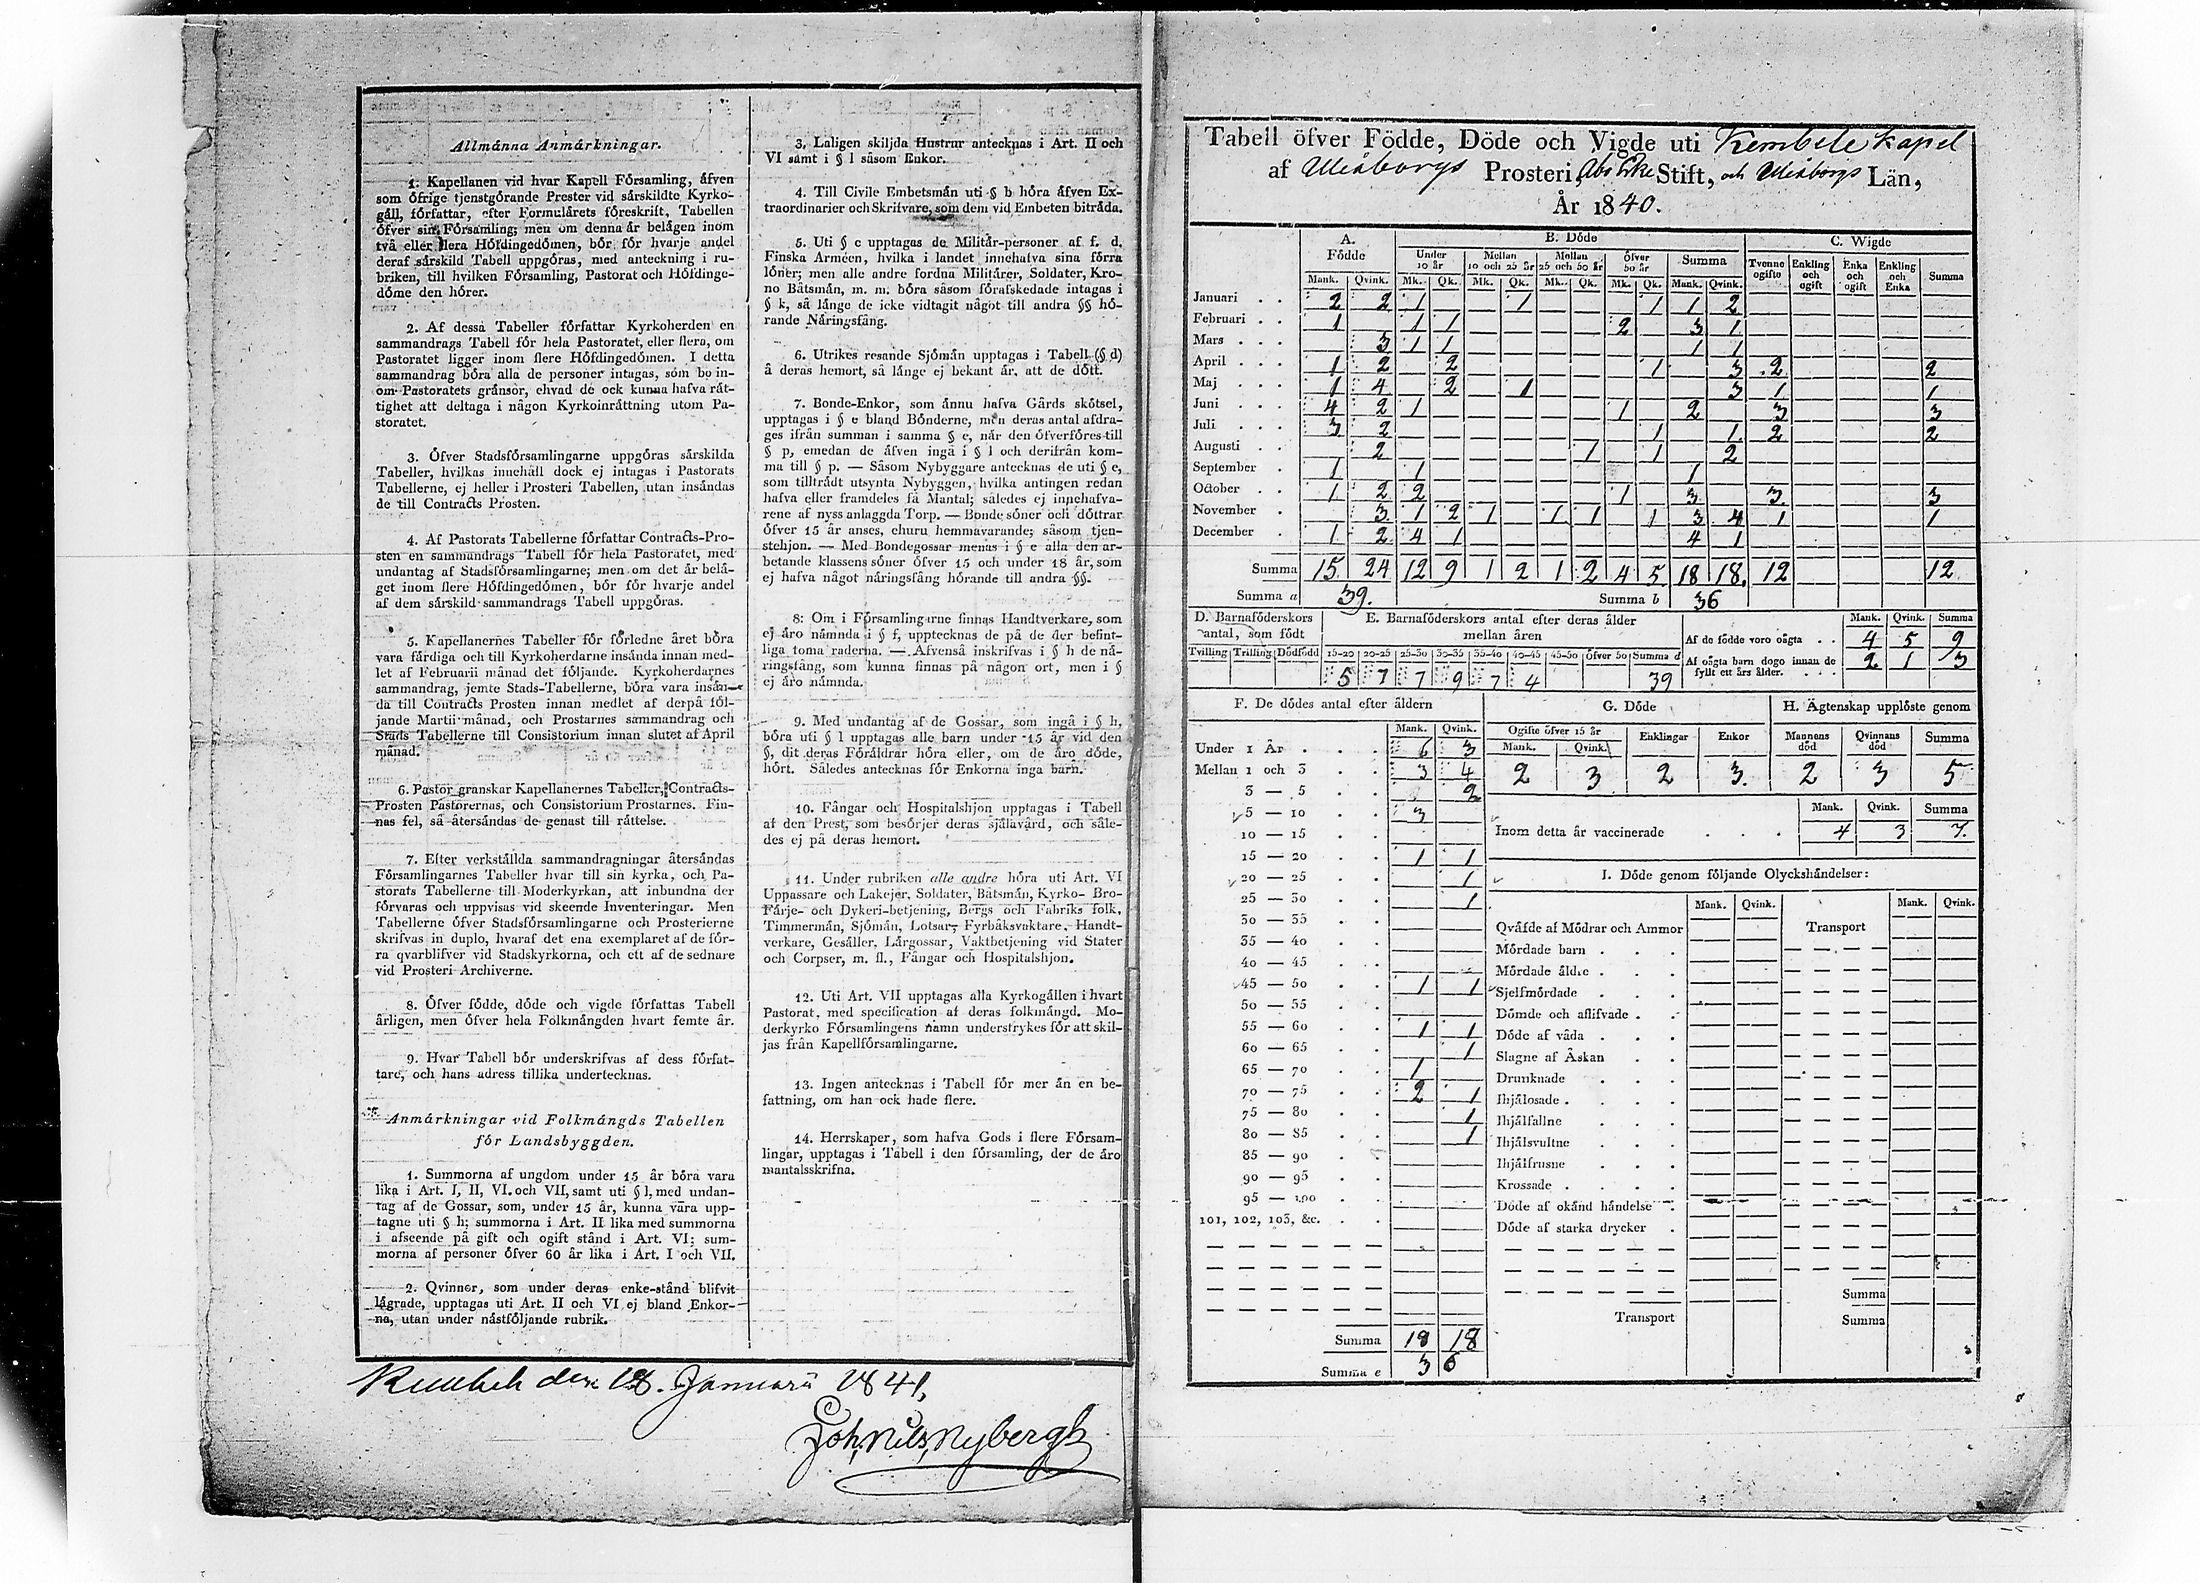 Allmänna Anmärkningar.
1: Kapellanen vid hvar Kapell Församling, äfven
som öfrige tjenstgörande Prester vid särskildte Kyrko-
gäll, författar, efter Formulärets föreskrift, Tabellen
öfver sin Församling; men om denna är belägen inom
två eller flera Höfdingedömen, bör för hvarje andel
deraf särskild Tabell uppgöras, med anteckning i ru-
briken, till hvilken Församling, Pastorat och Höfdinge-
döme den hörer.
2. Af dessa Tabeller författar Kyrkoherden en
sammandrags Tabell för hela Pastoratet, eller flera, om
Pastoratet ligger inom flere Höfdingedömen. I detta
sammandrag böra alla de personer intagas, som bo in-
om Pastoratets gränsor, ehvad de ock kunna hafva rät-
tighet att deltaga i någon Kyrkoinrättning utom Pa-
storatet.
3. Öfver Stadsförsamlingarne uppgöras särskilda
Tabeller, hvilkas innehåll dock ej intagas i Pastorats
Tabellerne, ej heller i Prosteri Tabellen, utan insändas
de till Contracts Prosten.
4. Af Pastorats Tabellerne författar Contracts-Pro-
sten en sammandrags Tabell för hela Pastoratet, med
undantag af Stadsförsamlingarne; men om det är belä-
get inom flere Höfdingedömen, bör för hvarje andel
af dem särskild sammandrags Tabell uppgöras.
5. Kapellanernes Tabeller för förledne året böra
vara färdiga och till Kyrkoherdarne insända innan med-
let af Februarii månad det följande. Kyrkoherdarnes
sammandrag, jemte Stads-Tabellerne, böra vara insän-
da till Contracts Prosten innan medlet af derpå föl-
jande Martii månad, och Prostarnes sammandrag och
Stads Tabellerne till Consistorium innan slutet af April
månad.
6. Pastor granskar Kapellanernes Tabeller, Contracts-
Prosten Pastorernas, och Consistorium Prostarnes. Fin-
nas fel, så återsändas de genast till rättelse.
7. Efter verkställda sammandragningar återsändas
Församlingarnes Tabeller hvar till sin kyrka, och Pa-
storats Tabellerne till Moderkyrkan, att inbundna der
förvaras och uppvisas vid skeende Inventeringar. Men
Tabellerne öfver Stadsförsamlingarne och Prosterierne
skrifvas in duplo, hvaraf det ena exemplaret af de för-
ra qvarblifver vid Stadskyrkorna, och ett af de sednare
vid Prosteri Archiverne.
8. Öfver födde, döde och vigde författas Tabell
årligen, men öfver hela Folkmängden hvart femte år.
9. Hvar Tabell bör underskrifvas af dess förfat-
tare, och hans adress tillika undertecknas.
Anmärkningar vid Folkmängds Tabellen
för Landsbyggden.
1. Summorna af ungdom under 15 år böra vara
lika i Art. I, II, VI. och VII, samt uti § l, med undan-
tag af de Gossar, som, under 15 år, kunna vara upp-
tagne uti § h; summorna i Art. II lika med summorna
i afseende på gift och ogift stånd i Art. VI; sum-
morna af personer öfver 60 år lika i Art. I och VII.
2. Qvinner, som under deras enke-stånd blifvit
lägrade, upptagas uti Art. II och VI ej bland Enkor-
na, utan under nästföljande rubrik.
3. Laligen skiljda Hustrur antecknas i Art. II och
VI samt i § l såsom Enkor.
4. Till Civile Embetsmän uti § b höra äfven Ex-
traordinarier och Skrifvare, som dem vid Embeten biträda.
5. Uti § c upptagas de Militär-personer af f. d.
Finska Arméen, hvilka i landet innehafva sina förra
löner; men alle andre fordna Militärer, Soldater, Kro-
no Båtsmän, m. m. böra såsom förafskedade intagas i
§ k, så länge de icke vidtagit något till andra §§ hö-
rande Näringsfång.
6. Utrikes resande Sjömän upptagas i Tabell (§ d)
å deras hemort, så länge ej bekant är, att de dött.
7. Bonde-Enkor, som ännu hafva Gårds skötsel,
upptagas i § e bland Bönderne, men deras antal afdra-
ges ifrån summan i samma § e, når den öfverföres till
§ p, emedan de äfven ingå i § l och derifrån kom-
ma till § p. — Såsom Nybyggare antecknas de uti § e,
som tillträdt utsynta Nybyggen, hvilka antingen redan
hafva eller framdeles få Mantal; således ej innehafva-
rene af nyss anlaggda Torp. — Bonde söner och döttrar
öfver 15 år anses, ehuru hemmavarande; såsom tjen-
stehjon. — Med Bondegossar menas i § e alla den ar-
betande klassens söner öfver 15 och under 18 år, som
ej hafva något näringsfång hörande till andra §§.
8: Om i Församlingarne finnas Handtverkare, som
ej äro nämnda i § f, upptecknas de på de der befint-
liga toma raderna. — Äfvenså inskrifvas i § h de nä-
ringsfång, som kunna finnas på någon ort, men i §
ej äro nämnda.
9. Med undantag af de Gossar, som ingå i § h,
böra uti § l upptagas alle barn under 15 år vid den
§, dit deras Föräldrar höra eller, om de äro döde,
hört. Således antecknas för Enkorna inga barn.
10. Fångar och Hospitalshjon upptagas i Tabell
af den Prest, som besörjer deras själavård, och såle-
des ej på deras hemort.
11. Under rubriken alle andre höra uti Art. VI
Uppassare och Lakejer, Soldater, Båtsmän, Kyrko- Bro-
Färje- och Dykeri-betjening, Bergs och Fabriks folk,
Timmermän, Sjömän, Lotsar, Fyrbåksvaktare, Handt-
verkare, Gesäller, Lärgossar, Vaktbetjening vid Stater
och Corpser, m. fl., Fångar och Hospitalshjon.
12. Uti Art. VII upptagas alla Kyrkogällen i hvart
Pastorat, med specification af deras folkmängd. Mo-
derkyrko Församlingens namn understrykes för att skil-
jas från Kapellförsamlingarne.
13. Ingen antecknas i Tabell för mer än en be-
fattning, om han ock hade flere.
14. Herrskaper, som hafva Gods i flere Försam-
lingar, upptagas i Tabell i den församling, der de äro
mantalsskrifna.
den 18. Januarii 1841,
Joh, Nils, Nybergh
Tabell öfver Födde, Döde och Vigde uti Kembele Kapel
af Uleåborgs Prosteri, Åbo Erke Stift, och Uleåborgs Län,
År 1840.
A. Födde B. Döde C. Wigde
Under 10 år Mellan 10 och 25 år Mellan 25 och 50 år Öfver 50 år Summa Tvenne ogifte Enkling och ogift Enka och ogift Enkling och Enka Summa
Mank. Qvink. Mk. Qk. Mk. Qk. Mk. Qk. Mk. Qk. Mank. Qvink.
Januari . . 2 2 1 1 1 1 2
Februari . . 1 1 1 2 3 1
Mars . . . 3 1 1 1 1
April . . . 1 2 2 1 3 2 2
Maj . . . 1 4 2 1 3 1 1
Juni . . . 4 2 1 1 2 3 3
Juli . . . 3 2 1 1 2 2
Augusti . . 2 1 1 2
September . 1 1 1
October . . 1 2 2 1 3 3 3
November . 3 1 2 1 1 1 1 3 4 1 1
December . 1 2 4 1 4 1
Summa 15 24 12 9 1 2 1 2 4 5 18 18 12 12
Summa a 39. Summa b 36
D. Barnaföderskors antal, som födt
Tvilling Trilling Dödfödd
E. Barnaföderskors antal efter deras ålder mellan åren
15-20 20-25 25-30 30-35 35-40 40-45 45-50 Öfver 50 Summa d
5 7 7 9 7 4 39
Mank. Qvink. Summa
Af de födde voro oägta . . 4 5 9
Af oägta barn dogo innan de fyllt ett års ålder. . . . 2 1 3
F. De dödes antal efter åldern
Mank. Qvink.
Under 1 År . . . 6 3
Mellan 1 och 3 . . 3 4
3 — 5 . . 2
5 — 10 . . 3
10 — 15 . .
15 — 20 . . 1 1
20 — 25 . . 1
25 — 30 . . 1
30 — 35 . .
35 — 40 . .
40 — 45 . .
45 — 50 . . 1 1
50 — 55 . .
55 — 60 . . 1 1
60 — 65 . . 1
65 — 70 . . 1
70 — 75 . . 2 1
75 — 80 . . 1
80 — 85 . . 1
85 — 90 . .
90 — 95 . .
95 — 100 . .
101, 102, 103, &c. . .
Summa 18 18
Summa e 36
G. Döde
Ogifte öfver 15 år Enklingar Enkor
Mank. Qvink.
2 3 2 3.
H. Ägtenskap upplöste genom
Mannens död Qvinnans död Summa
2 3 5
Mank. Qvink. Summa
Inom detta år vaccinerade . . . 4 3 7.
I. Döde genom följande Olyckshändelser:
Mank. Qvink. Mank. Qvink.
Qväfde af Mödrar och Ammor Transport
Mördade barn . . .
Mördade äldre . . .
Sjelfmördade . . .
Dömde och aflifvade . .
Döde af våda . . .
Slagne af Åskan . .
Drunknade . . .
Ihjälosade . . . .
Ihjälfallne . . .
Ihjälsvultne . . .
Ihjälfrusne . . .
Krossade . . . .
Döde af okänd händelse .
Döde af starka drycker .
Summa
Transport Summa